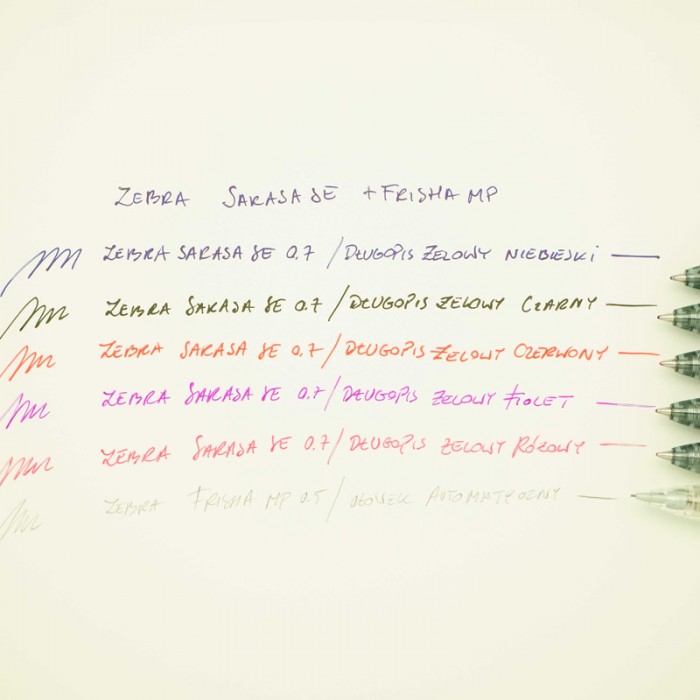 ZEBRA SARASA SE + FRISHA MP
ZEBRA SARASA SE 0.7 / DŁUGOPIS ŻELOWY NIEBIESKI
ZEBRA SARASA SE 0.7 / DŁUGOPIS ŻELOWY CZARNY
ZEBRA SARASA SE 0.7 / DŁUGOPIS ŻELOWY CZERWONY
ZEBRA SARASA SE 0.7 / DŁUGOPIS ŻELOWY FIOLET
ZEBRA SARASA SE 0.7 / DŁUGOPIS ŻELOWY RÓŻOWY
ZEBRA FRISHA MP 0.5 / OŁÓWEK AUTOMATYCZNY